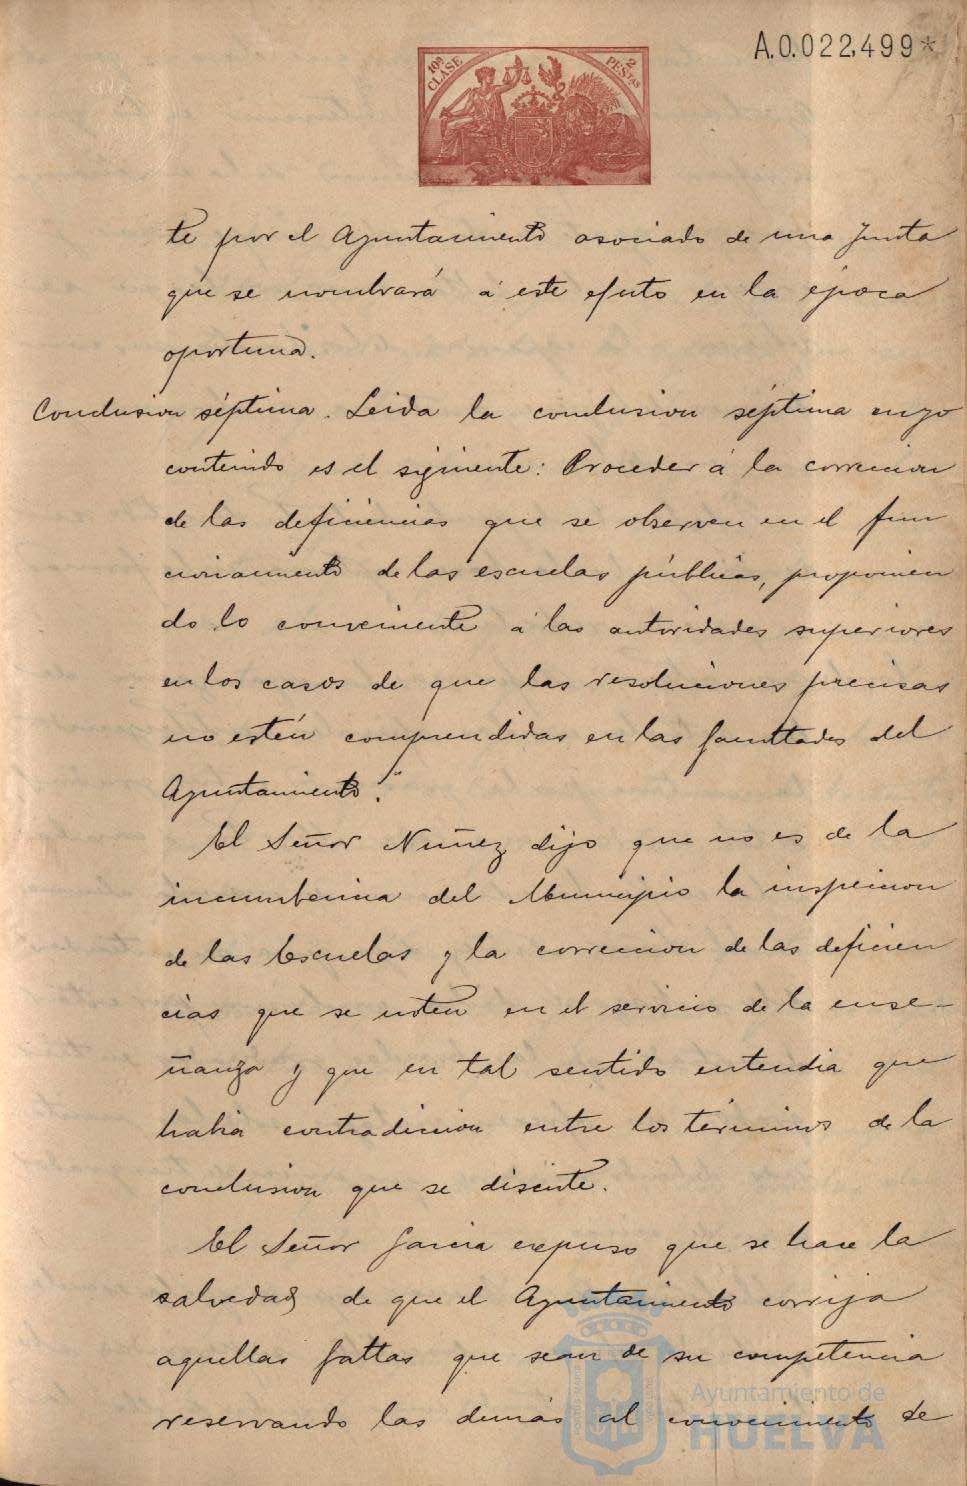 A.0.022,499*
10ª CLASE
2 PEStas
te por el Ayuntamiento asociado de una Junta
que se nombrará á este efecto en la época
oportuna.
Conclusion séptima. Leida la conclusion séptima cuyo
contenido es el siguiente: Proceder á la correccion
de las deficiencias que se observen en el fun
cionamiento de las escuelas públicas, proponien
do lo conveniente á las autoridades superiores
en los casos de que las resoluciones precisas
no estén comprendidas en las facultades del
Ayuntamiento."
El Señor Nuñez dijo que no es de la
incumbencia del Municipio la inspeccion
de las Escuelas y la correccion de las deficien
cias que se noten en el servicio de la ense-
ñanza y que en tal sentido entendia que
habia contradiccion entre los términos de la
conclusion que se discute.
El Señor Garcia expuso que se hace la
salvedad de que el Ayuntamiento corrija
aquellas faltas que sean de su competencia
reservando las demás al conocimiento de
Ayuntamiento de
HUELVA